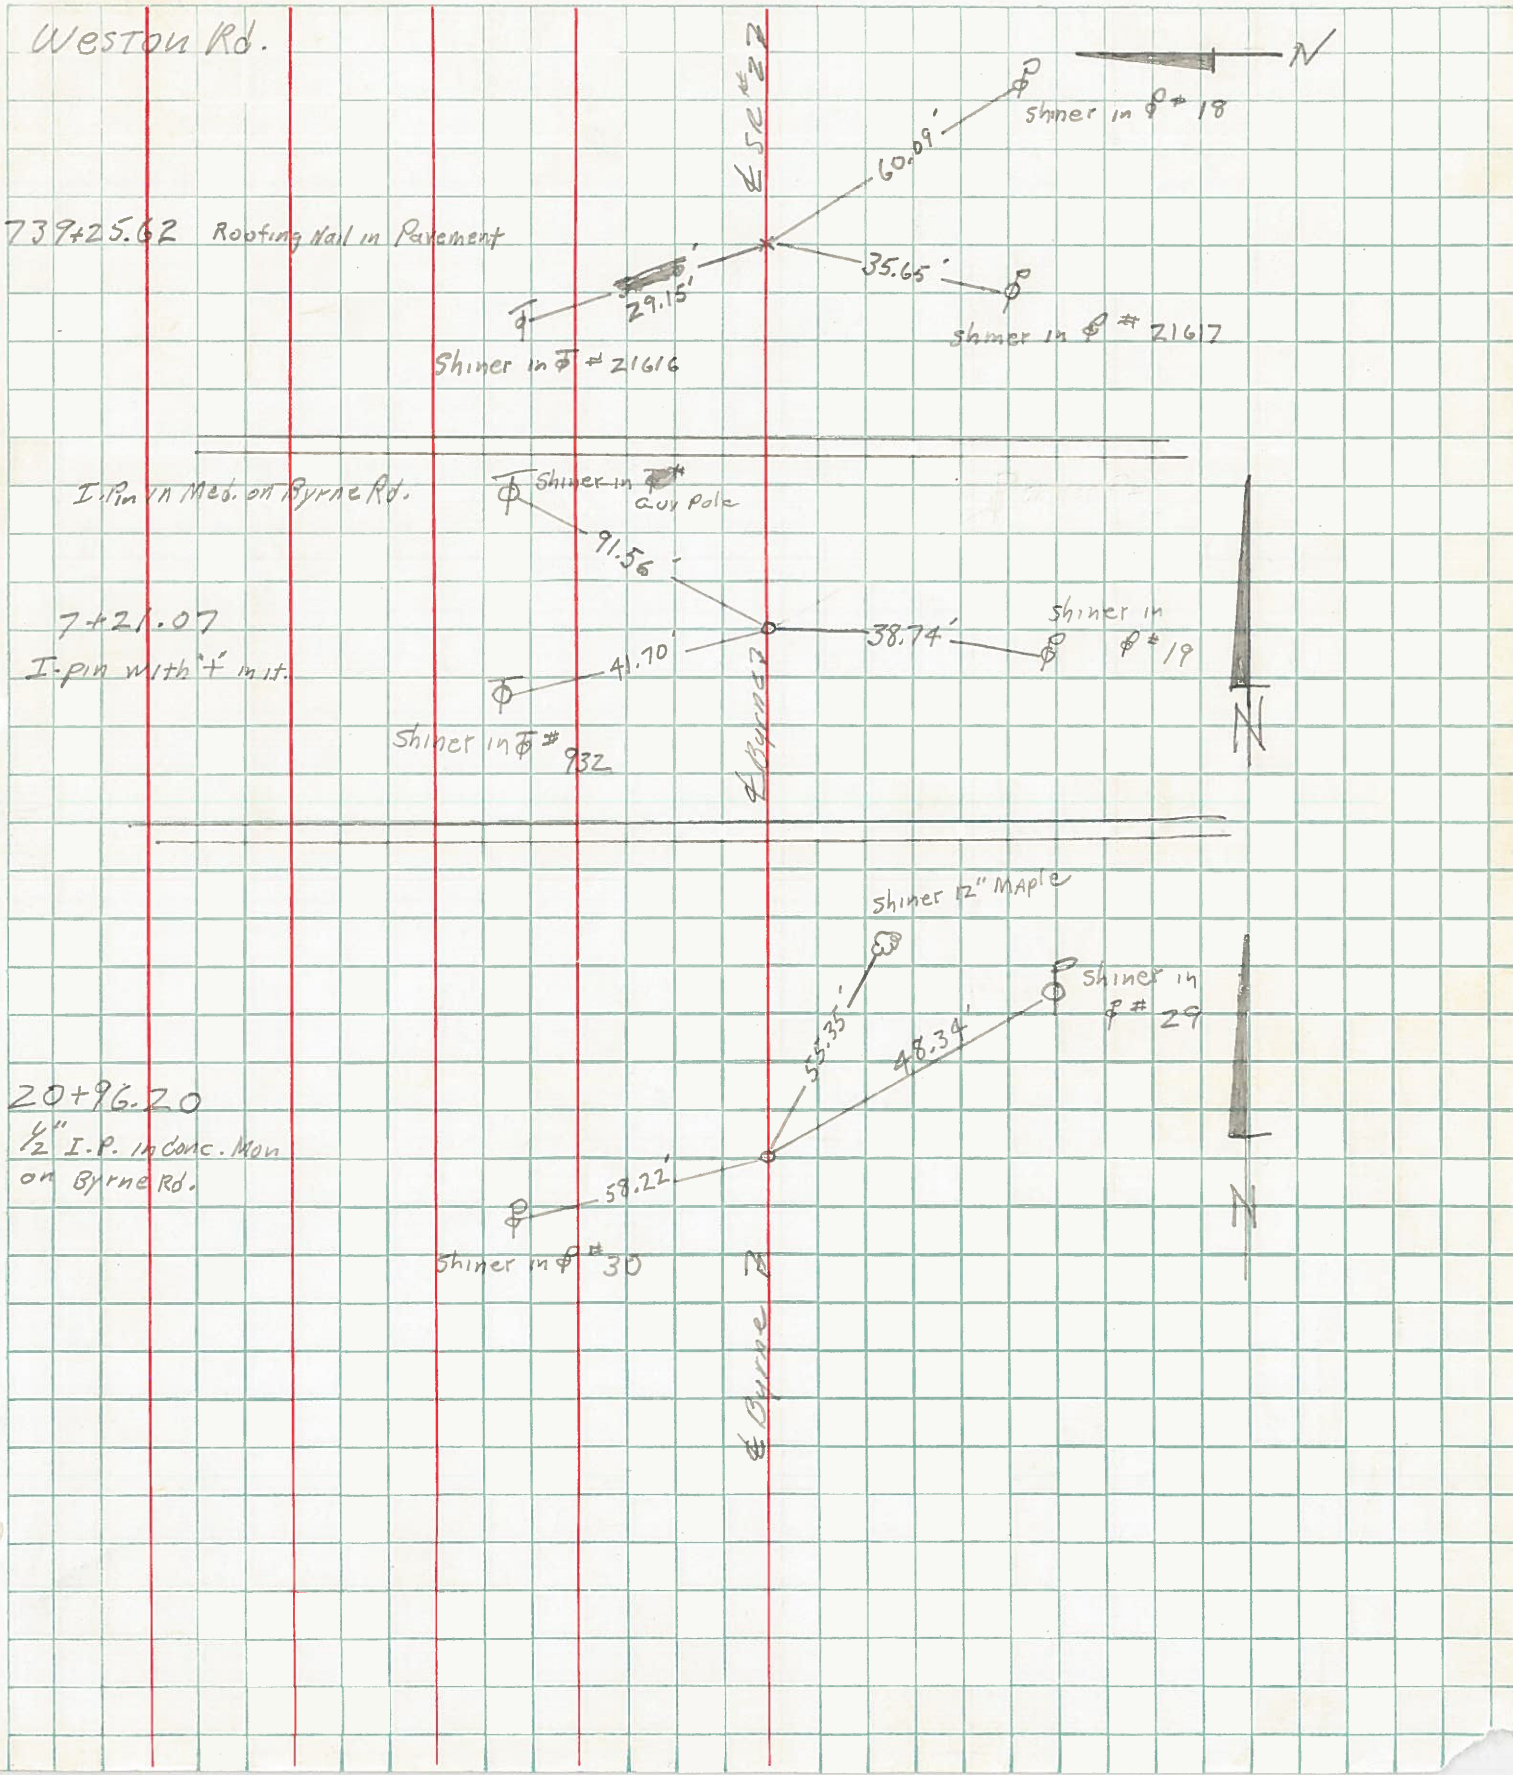 Weston Rd.
℄ SR #2
N
60.09'
Shiner in #18
739+25.62 Roofing Nail in Pavement
35.65'
29.15'
Shiner in #21617
Shiner in #21616
I.Pin in Med. on Byrne Rd.
Shiner in
Guy Pole
91.56'
7+21.07
I-pin with "+" in it.
41.70'
38.74'
Shiner in
#19
Shiner in #932
℄ Byrne
N
Shiner 12" Maple
Shiner in
#29
55.35'
48.34'
20+96.20
1/2" I.P. in Conc. Mon
on Byrne Rd.
58.22'
N
Shiner in #30
℄ Byrne